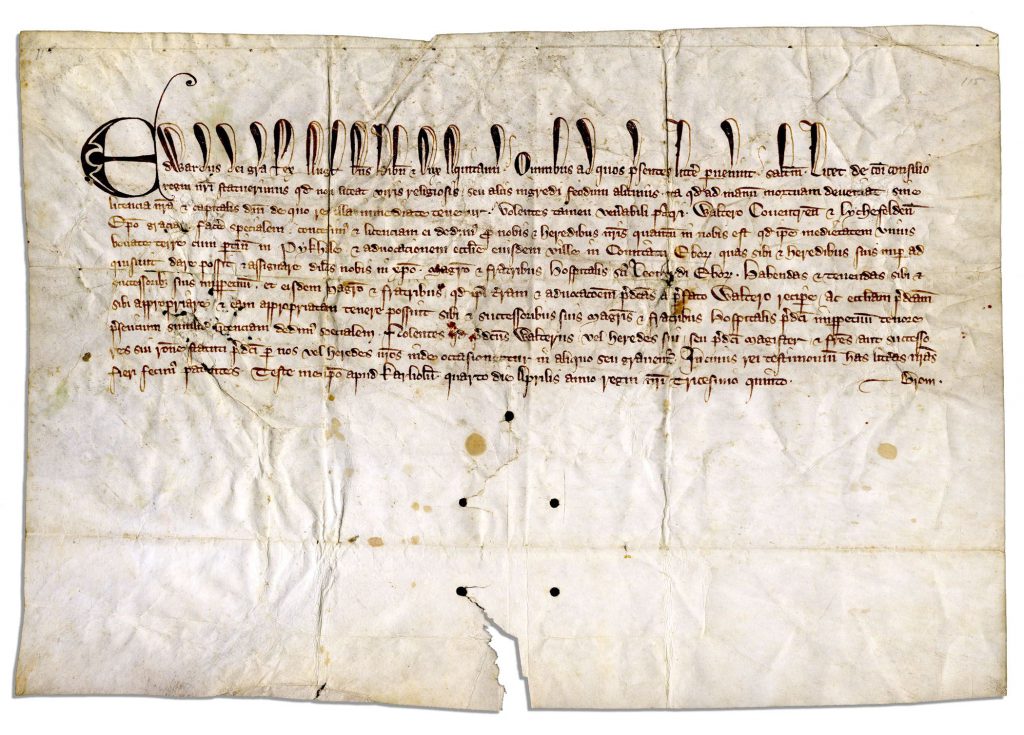 Edwardus dei gra Rex Angl Dns Hibn & Dux Aquitann . Omnibus ad quos psentes littere pvenint saltm . Licet de coi consilio
regni nri statuerimus qd non liceat viris religiosis seu aliis ingredi feodum alicuius ita qd ad manu mortuam deveniat sine
licencia nra & capitalis dni de quo res illa immediate tenetur . Volentes tamen venabili pri Waltero Coventren & Lychefelden
Epo gram face specialem concessim & licenciam ei dedim p nobis & heredibus nris quantu in nobis est qd ipe medietatem unius
bovate terre cum ptin in Pykhale & advocacionem ecclie eiusdem ville in Comitatu Ebor quas sibi & heredibus suis nup ad
quisivit dare possit & assignare dilcis nobis in xpo Magro & fratribus Hospitalis sci Leonardi Ebor . Habendas & tenendas sibi &
successorib suis imppetuu . et eisdem Magro & fratribus qd ipi tram & advocacoem pdcas a pfato Waltero recipe ac eccliam pdcam
sibi appropriare & eam appropriatam tenere possint sibi & successoribus suis Magris & fratribus Hospitalis pdci imppetuu tenore
psencium similit licenciam dedim specialem . Nolentes qd pdcus Walterus vel heredes sui seu pdci magister & fres aut successo
res sui rone statuti pdci p nos vel heredes nros inde occasionetur in aliquo seu gravent . In cuius rei testimonium has litteras nras
fieri fecim patentes . Teste me ipo apud Karliolum . quarto die Aprilis anno regni nri Tricesimo quinto .
115